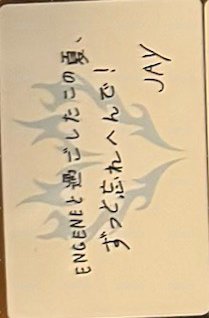 ENGENEと過ごしたこの夏、
ずっと忘れへんで！
JAY